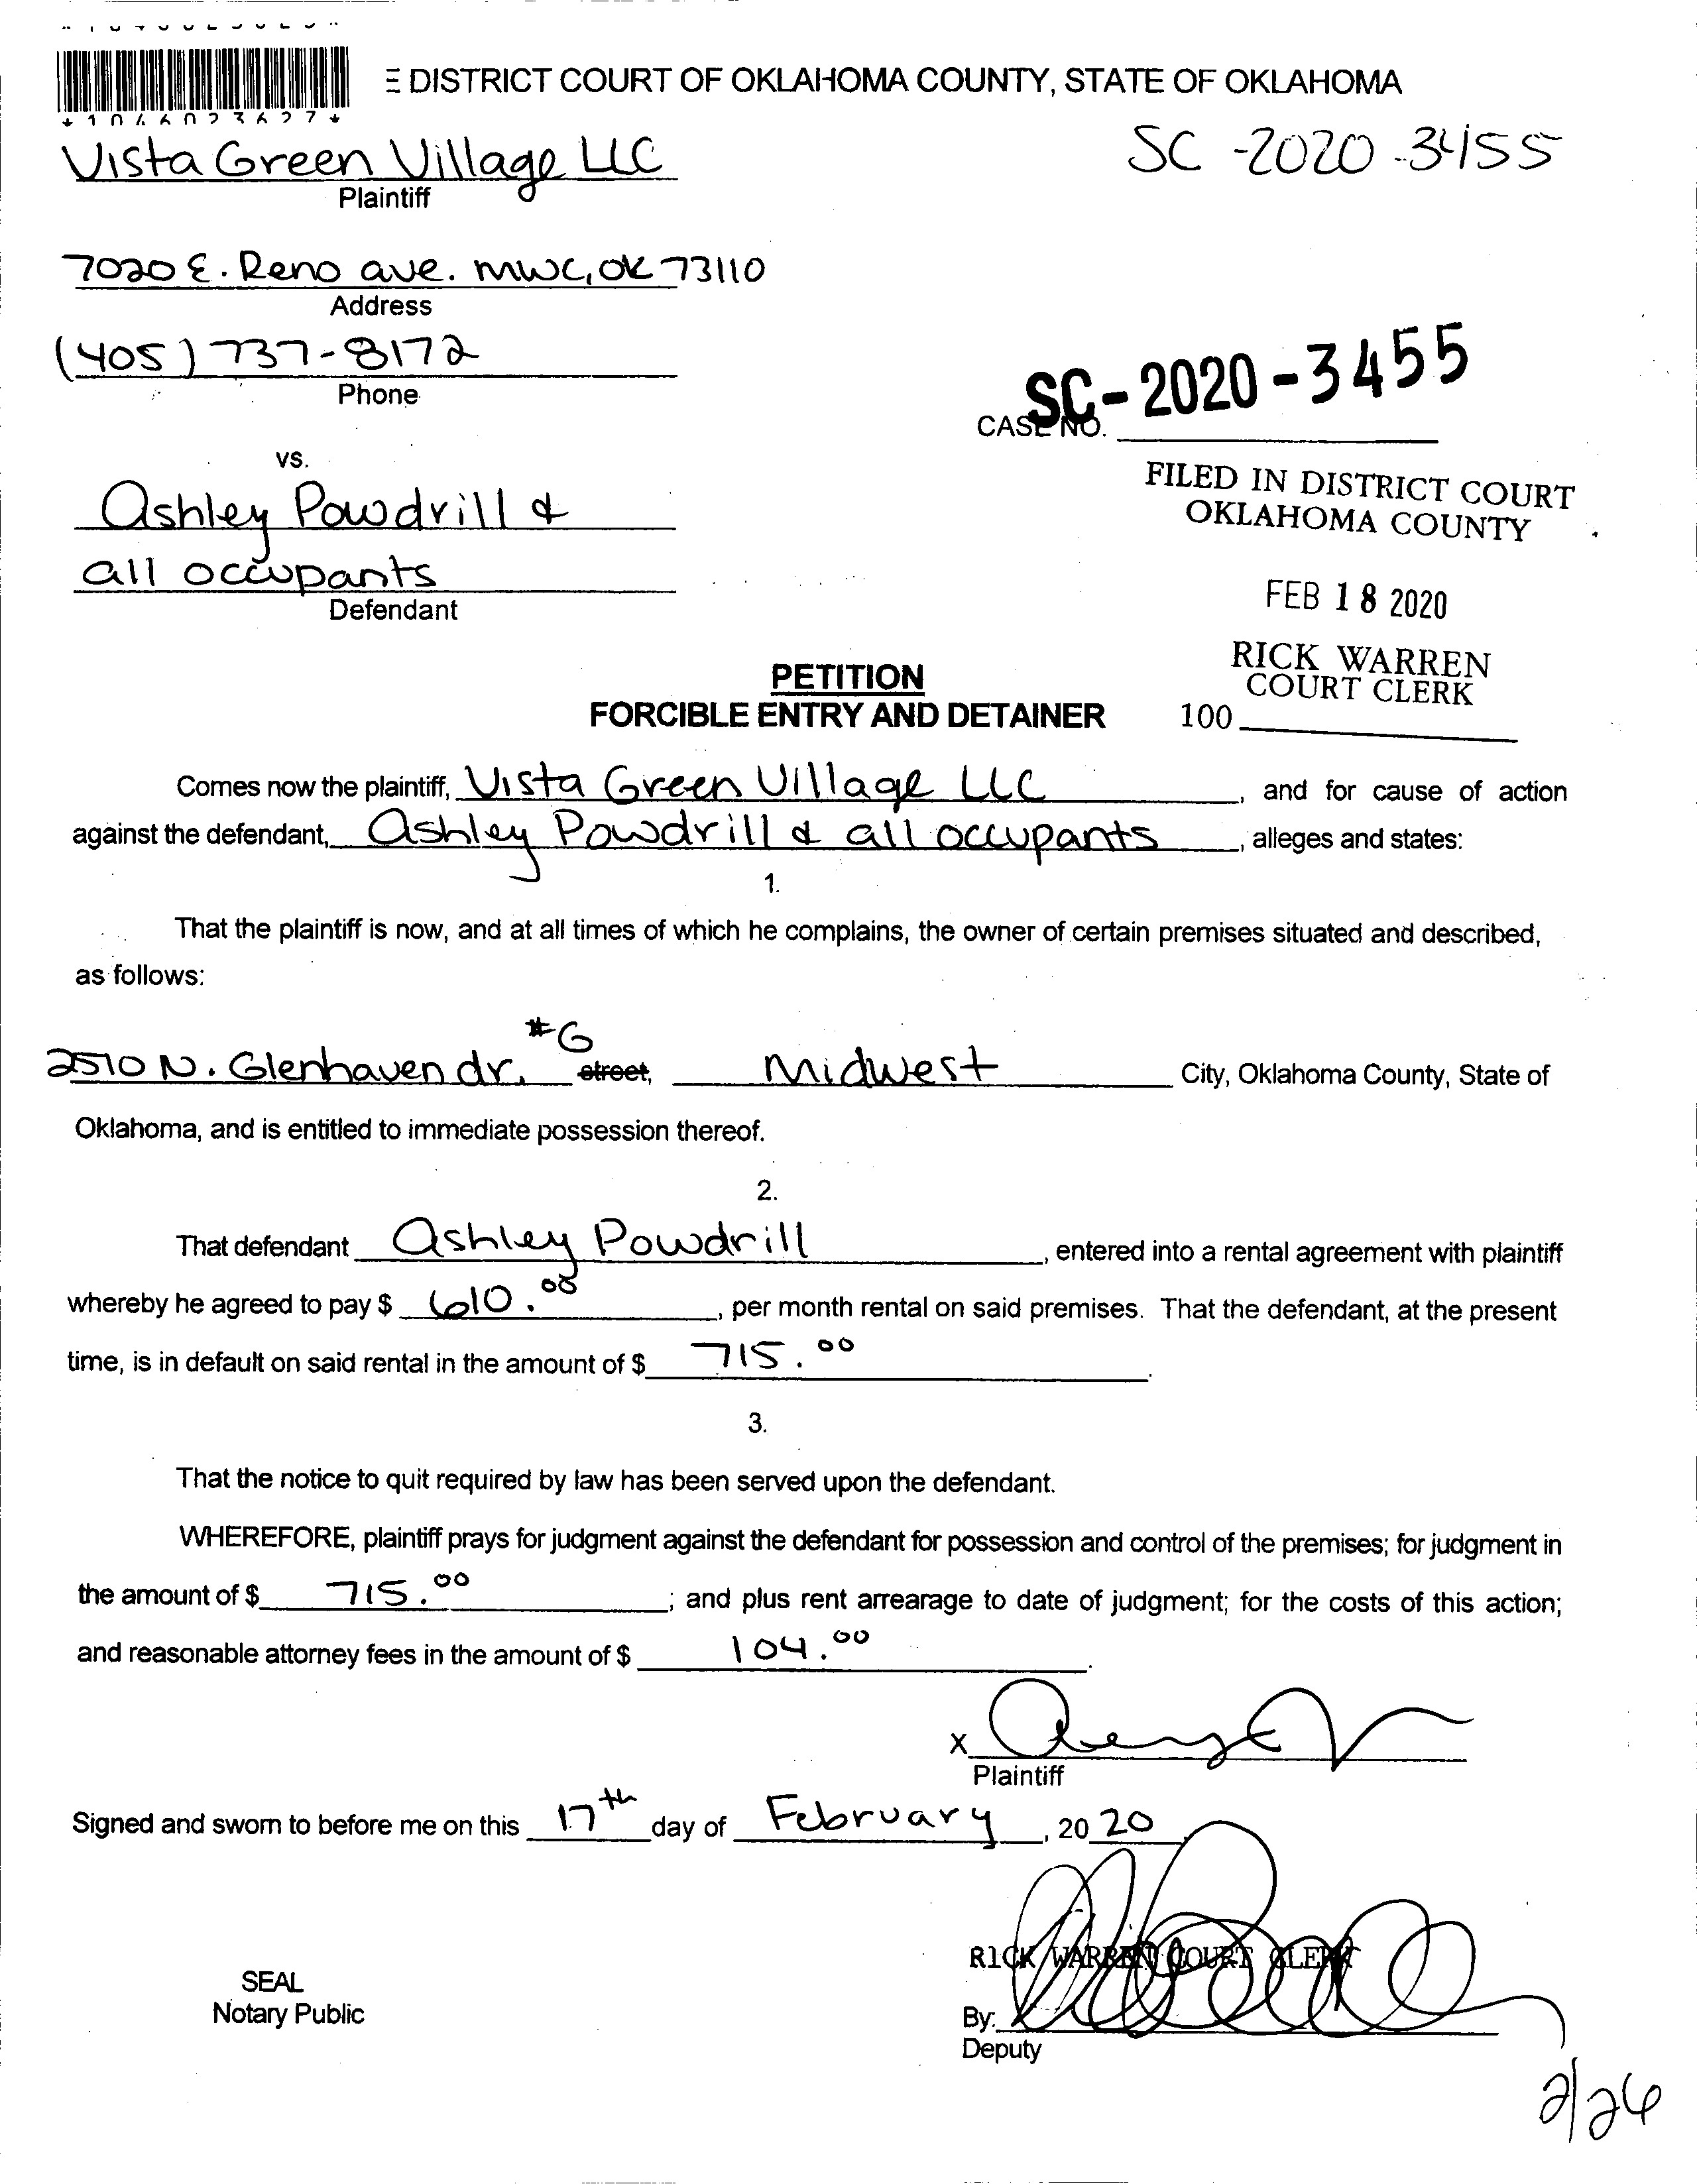 DISTRICT COURT OF OKLAHOMA COUNTY, STATE OF OKLAHOMA
*1046023627*
Vista Green Village LLC
Plaintiff
SC-2020-3455
7020 E. Reno ave. mwc, OK 73110
Address
(405) 737-8172
Phone
SC-2020-3455
CASE NO.
vs.
Ashley Powdrill &
all occupants
Defendant
FILED IN DISTRICT COURT
OKLAHOMA COUNTY
FEB 18 2020
RICK WARREN
COURT CLERK
100
PETITION
FORCIBLE ENTRY AND DETAINER
Comes now the plaintiff, Vista Green Village LLC, and for cause of action
against the defendant, Ashley Powdrill & all occupants, alleges and states:
1.
That the plaintiff is now, and at all times of which he complains, the owner of certain premises situated and described,
as follows:
2510 N. Glenhaven dr. #G street, Midwest City, Oklahoma County, State of
Oklahoma, and is entitled to immediate possession thereof.
2.
That defendant Ashley Powdrill, entered into a rental agreement with plaintiff
whereby he agreed to pay $ 610.00, per month rental on said premises. That the defendant, at the present
time, is in default on said rental in the amount of $ 715.00.
3.
That the notice to quit required by law has been served upon the defendant.
WHEREFORE, plaintiff prays for judgment against the defendant for possession and control of the premises; for judgment in
the amount of $ 715.00; and plus rent arrearage to date of judgment; for the costs of this action;
and reasonable attorney fees in the amount of $ 104.00.
X
Plaintiff
Signed and sworn to before me on this 17th day of February, 2020
RICK WARREN COURT CLERK
SEAL
Notary Public
By:
Deputy
2/26